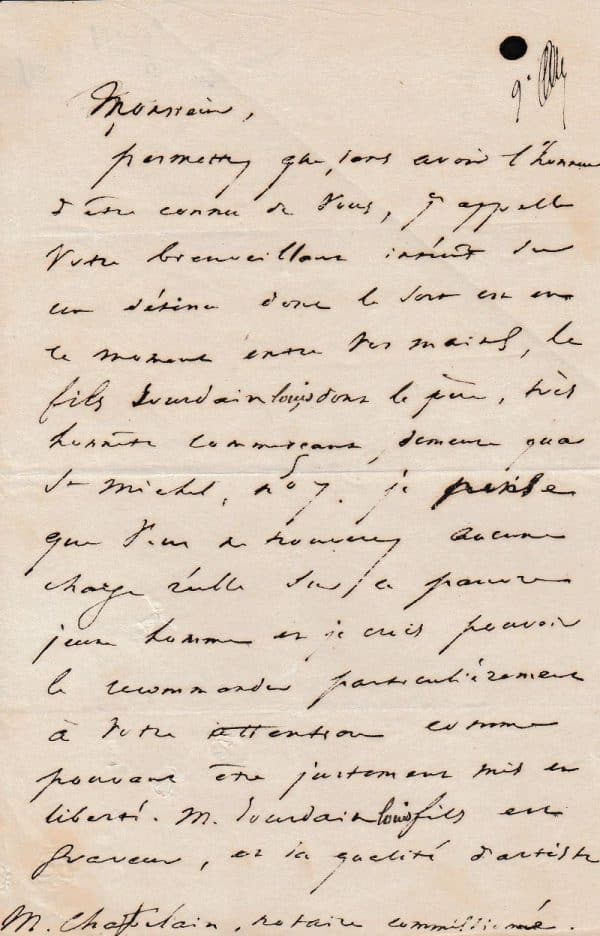 Monsieur,
permettez que, sans avoir l'honneur
d'être connu de Vous, j'appelle
Votre bienveillant intérêt sur
un détenu dont le sort est en
ce moment entre Vos mains, le
fils Jourdain louis dont le père, très
honnête commerçant, demeure quai
St Michel, no 7. je pense
que Vous ne trouverez aucune
charge réelle sur ce pauvre
jeune homme et je crois pouvoir
le recommander particulièrement
à Votre attention comme
pouvant être justement mis en
liberté. M. Jourdain louis fils est
graveur, et sa qualité d'artiste
M. Chapelain, notaire commissionné.